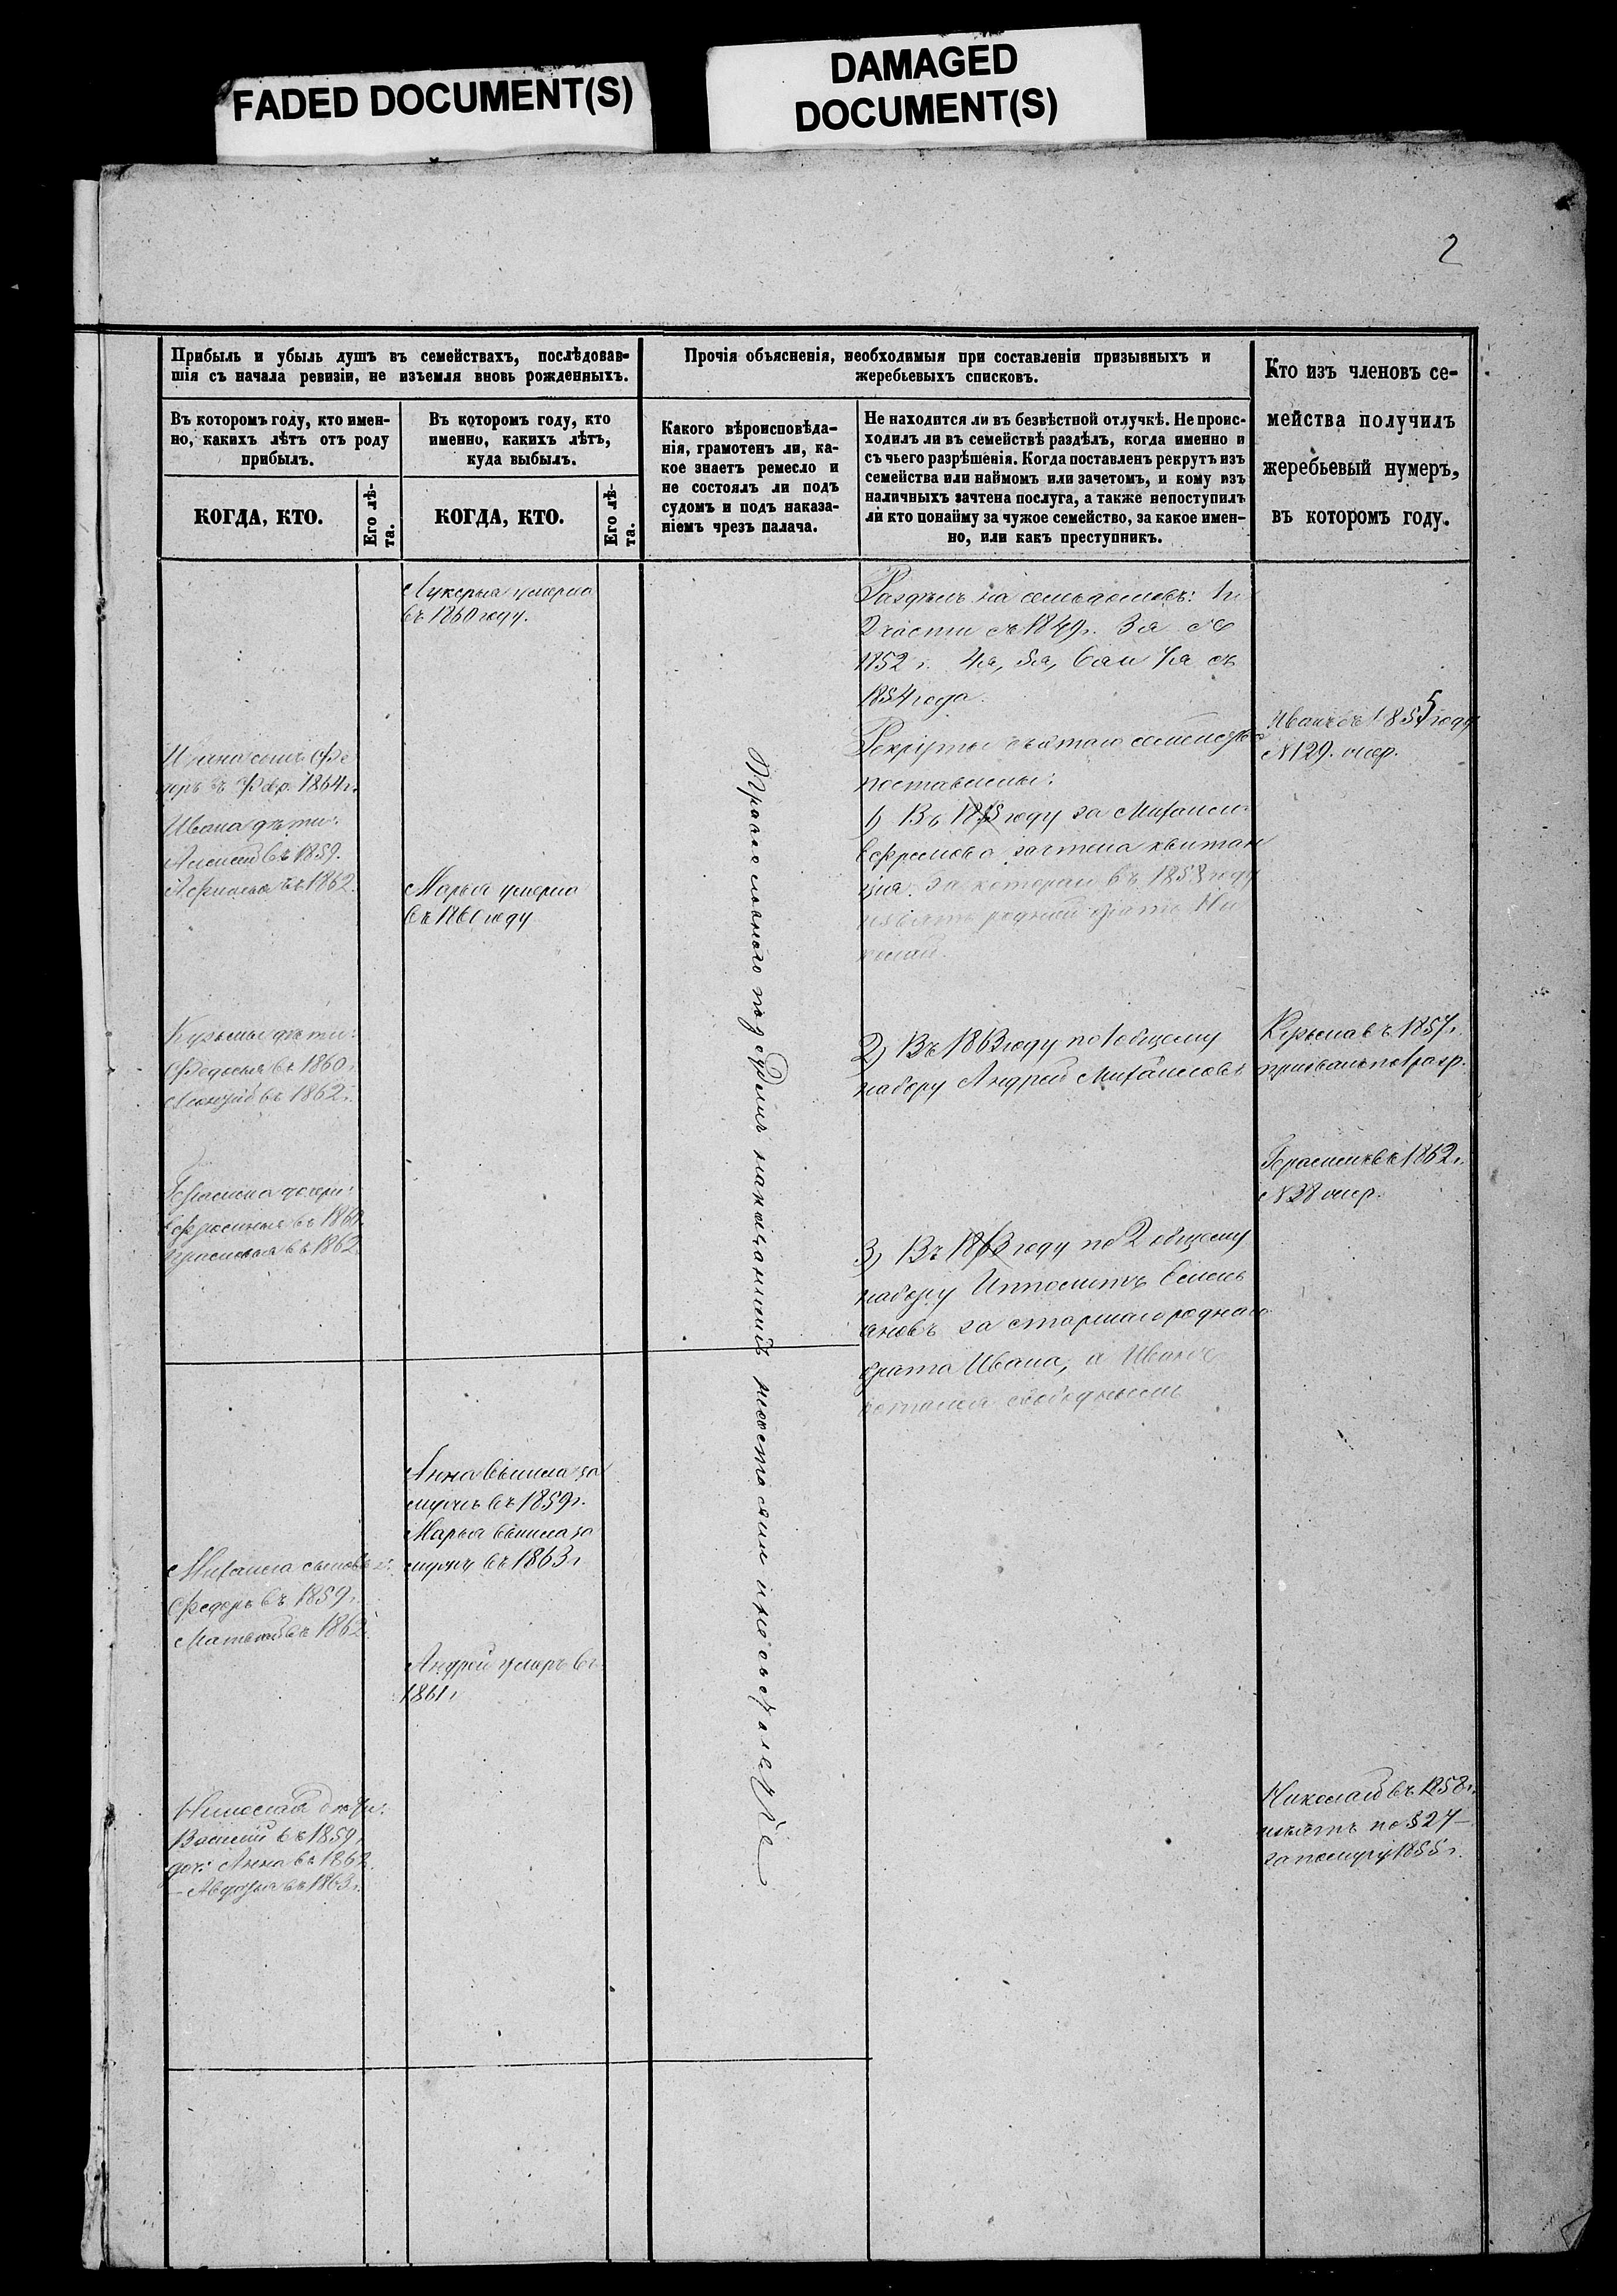 FADED DOCUMENT(S)
DAMAGED
DOCUMENT(S)
2
Прибыль и убыль душъ въ семействахъ, послѣдовав-
шія съ начала ревизіи, не изъемля вновь рожденныхъ.
Въ которомъ году, кто имен-
но, какихъ лѣтъ отъ роду
прибылъ.
КОГДА, КТО.
Его лѣ-
та.
Въ которомъ году, кто
именно, какихъ лѣтъ,
куда выбылъ.
КОГДА, КТО.
Его лѣ-
та.
Прочія объясненія, необходимыя при составленіи призывныхъ и
жеребьевыхъ списковъ.
Какого вѣроисповѣда-
нія, грамотенъ ли, ка-
кое знаетъ ремесло и
не состоялъ ли подъ
судомъ и подъ наказа-
ніемъ чрезъ палача.
Не находится ли въ безвѣстной отлучкѣ. Не проис-
ходилъ ли въ семействѣ раздѣлъ, когда именно и
съ чьего разрѣшенія. Когда поставленъ рекрутъ изъ
семейства или наймомъ или зачетомъ, и кому изъ
наличныхъ зачтена послуга, а также непоступилъ
ли кто понайму за чужое семейство, за какое имен-
но, или какъ преступникъ.
Кто изъ членовъ се-
мейства получилъ
жеребьевый нумеръ,
въ которомъ году.
сынъ Фе
доръ въ Февр. 1864 г.
Ивана дѣти:
Алексѣй въ 1859.
въ 1862.
Кузьмы дѣти:
Федосья въ 1860.
въ 1862 г.
Герасима дочери:
Ефросинья въ 1860.
въ 1862
Михаила сыновья:
Федоръ въ 1859 г.
Матвѣй въ 1862.
Николая дѣти:
Василій въ 1859 г.
доч: Анна въ 1862.
— Авдотья въ 1863 г.
Лукерья умерла
въ 1860 году.
Марья умерла
въ 1860 году
Анна вышла за
мужъ въ 1859 г.
Марья вышла за
мужъ въ 1863 г
Андрей умеръ въ
1861 г
Православнаго
Раздѣлъ на семь домовъ: 1 и
2 части съ 1849 г. 3 я съ
1852 г. 4 я, 5 я, 6 я и 7 я съ
1854 года.
Рекруты съ этаго семейства
поставлены:
1) Въ году за Михаила
Ефремова зачтена квитан
ція. За которую въ 1858 году
взятъ родной братъ Ни
колай.
2) Въ 1863 году по 1 общему
набору Андрей Михайловъ
3) Въ 1863 году по 2 общему
набору Ипполитъ Емель
яновъ за старшаго роднаго
брата Ивана, а Иванъ
остался свободнымъ
Иванъ въ 1855 году
N 129. очер.
Кузьма въ 1857 г.
призванъ по 1 разр.
Герасимъ въ 1862 г.
N 38 очер.
Николай въ 1858 г.
взятъ по § 27 —
1855 г.